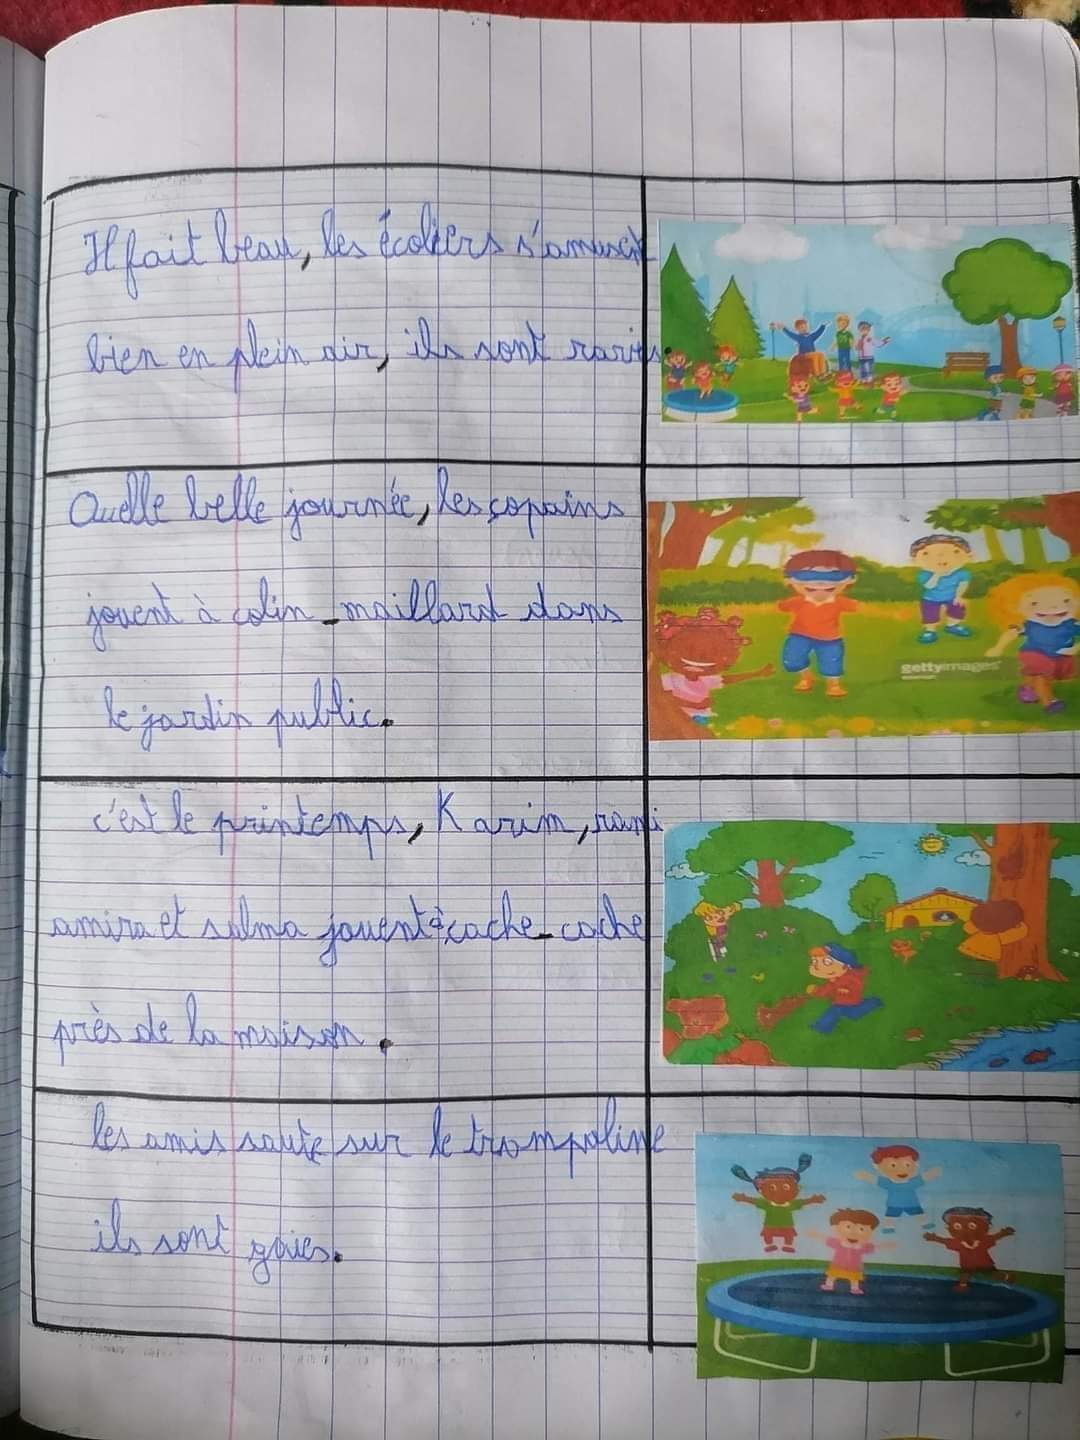 Il fait beau, les écoliers s'amusent
bien en plein air, ils sont ravis
Quelle belle journée, les copains
jouent à colin-maillard dans
le jardin public.
gettyimages
c'est le printemps, Karim, rami
amira et salma jouent à cache-cache
près de la maison.
les amis saute sur le trampoline
ils sont gaies.